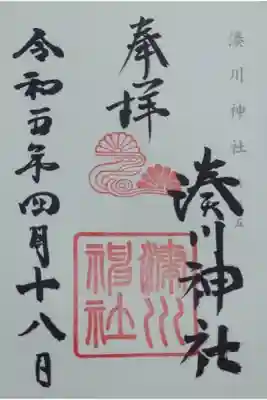 湊川神社
湊川神社
奉拝
湊川
神社
令和五年四月十八日